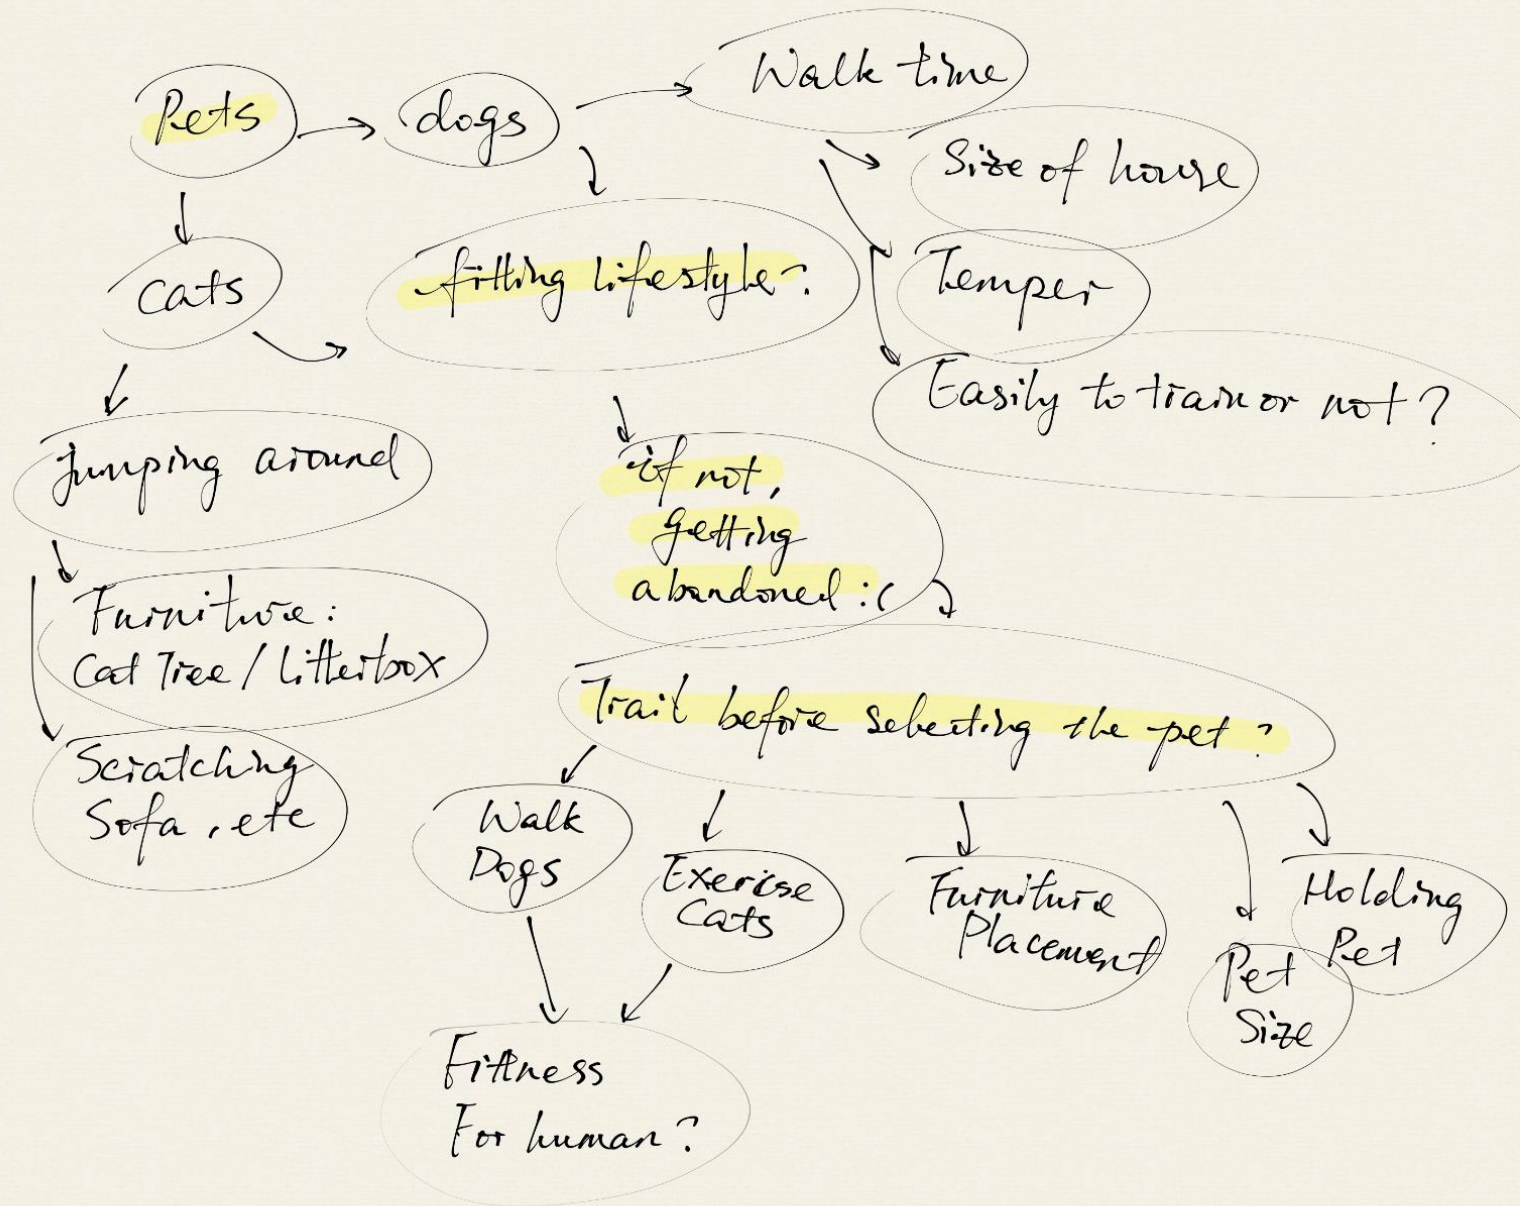 Pets
dogs
Walk time
Size of house
Temper
Easily to train or not?
cats
fitting lifestyle?
Jumping around
if not,
getting
abandoned :(
Furniture:
Cat Tree / Litterbox
Scratching
Sofa, etc
Trail before selecting the pet?
Walk
Dogs
Exericse
Cats
Furniture
Placement
Pet
Size
Holding
Pet
Fittness
For human?